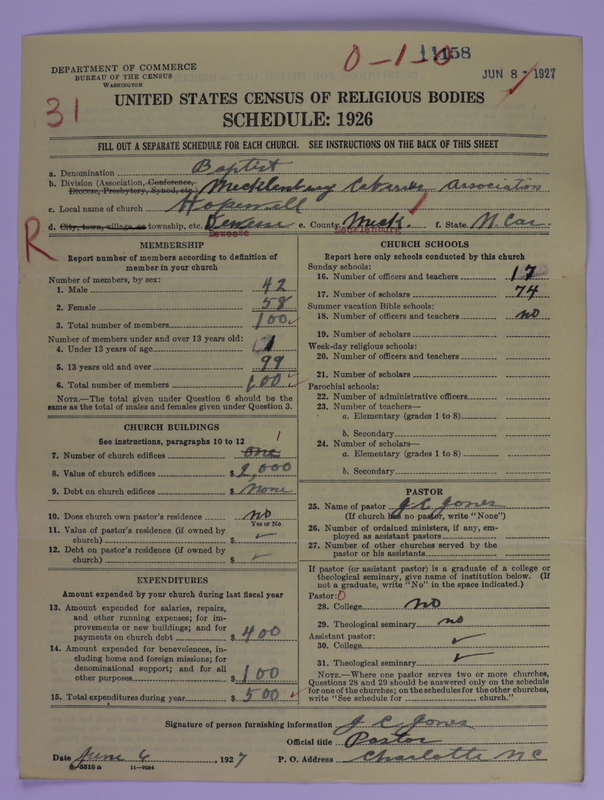 0-1-0
11458
DEPARTMENT OF COMMERCE
BUREAU OF THE CENSUS
WASHINGTON
JUN 8 - 1927
31
UNITED STATES CENSUS OF RELIGIOUS BODIES
SCHEDULE: 1926
FILL OUT A SEPARATE SCHEDULE FOR EACH CHURCH. SEE INSTRUCTIONS ON THE BACK OF THIS SHEET
a. Denomination Baptist
b. Division (Association, Conference, Diocese, Presbytery, Synod, etc.) Mecklenburg Cabarrus Association
c. Local name of church Hopewell
d. City, town, village, or township, etc. Deweese e. County Meck. f. State N. Car
Deweese
R
MEMBERSHIP
Report number of members according to definition of
member in your church
Number of members, by sex:
1. Male 42
2. Female 58
3. Total number of members 100
Number of members under and over 13 years old:
4. Under 13 years of age 1
5. 13 years old and over 99
6. Total number of members 100
NOTE.—The total given under Question 6 should be the
same as the total of males and females given under Question 3.
CHURCH BUILDINGS
See instructions, paragraphs 10 to 12
7. Number of church edifices One 1
8. Value of church edifices $ 2,000
9. Debt on church edifices $ None
10. Does church own pastor's residence no
Yes or No
11. Value of pastor's residence (if owned by
church) $ ✓
12. Debt on pastor's residence (if owned by
church) $ ✓
EXPENDITURES
Amount expended by your church during last fiscal year
13. Amount expended for salaries, repairs,
and other running expenses; for im-
provements or new buildings; and for
payments on church debt $ 400
14. Amount expended for benevolences, in-
cluding home and foreign missions; for
denominational support; and for all
other purposes $ 100
15. Total expenditures during year $ 500
CHURCH SCHOOLS
Report here only schools conducted by this church
Sunday schools:
16. Number of officers and teachers 17
17. Number of scholars 74
Summer vacation Bible schools:
18. Number of officers and teachers no
19. Number of scholars
Week-day religious schools:
20. Number of officers and teachers
21. Number of scholars
Parochial schools:
22. Number of administrative officers
23. Number of teachers—
a. Elementary (grades 1 to 8)
b. Secondary
24. Number of scholars—
a. Elementary (grades 1 to 8)
b. Secondary
PASTOR
25. Name of pastor J. C. Jones
(If church has no pastor, write "None")
26. Number of ordained ministers, if any, em-
ployed as assistant pastors
27. Number of other churches served by the
pastor or his assistants
If pastor (or assistant pastor) is a graduate of a college or
theological seminary, give name of institution below. (If
not a graduate, write "No" in the space indicated.)
Pastor: 0
28. College no
29. Theological seminary no
Assistant pastor:
30. College ✓
31. Theological seminary ✓
NOTE.—Where one pastor serves two or more churches,
Questions 28 and 29 should be answered only on the schedule
for one of the churches; on the schedules for the other churches,
write "See schedule for ________ church."
Signature of person furnishing information J. C. Jones
Official title Pastor
Date June 6, 1927 P. O. Address Charlotte N C
8-5515a 11-9024